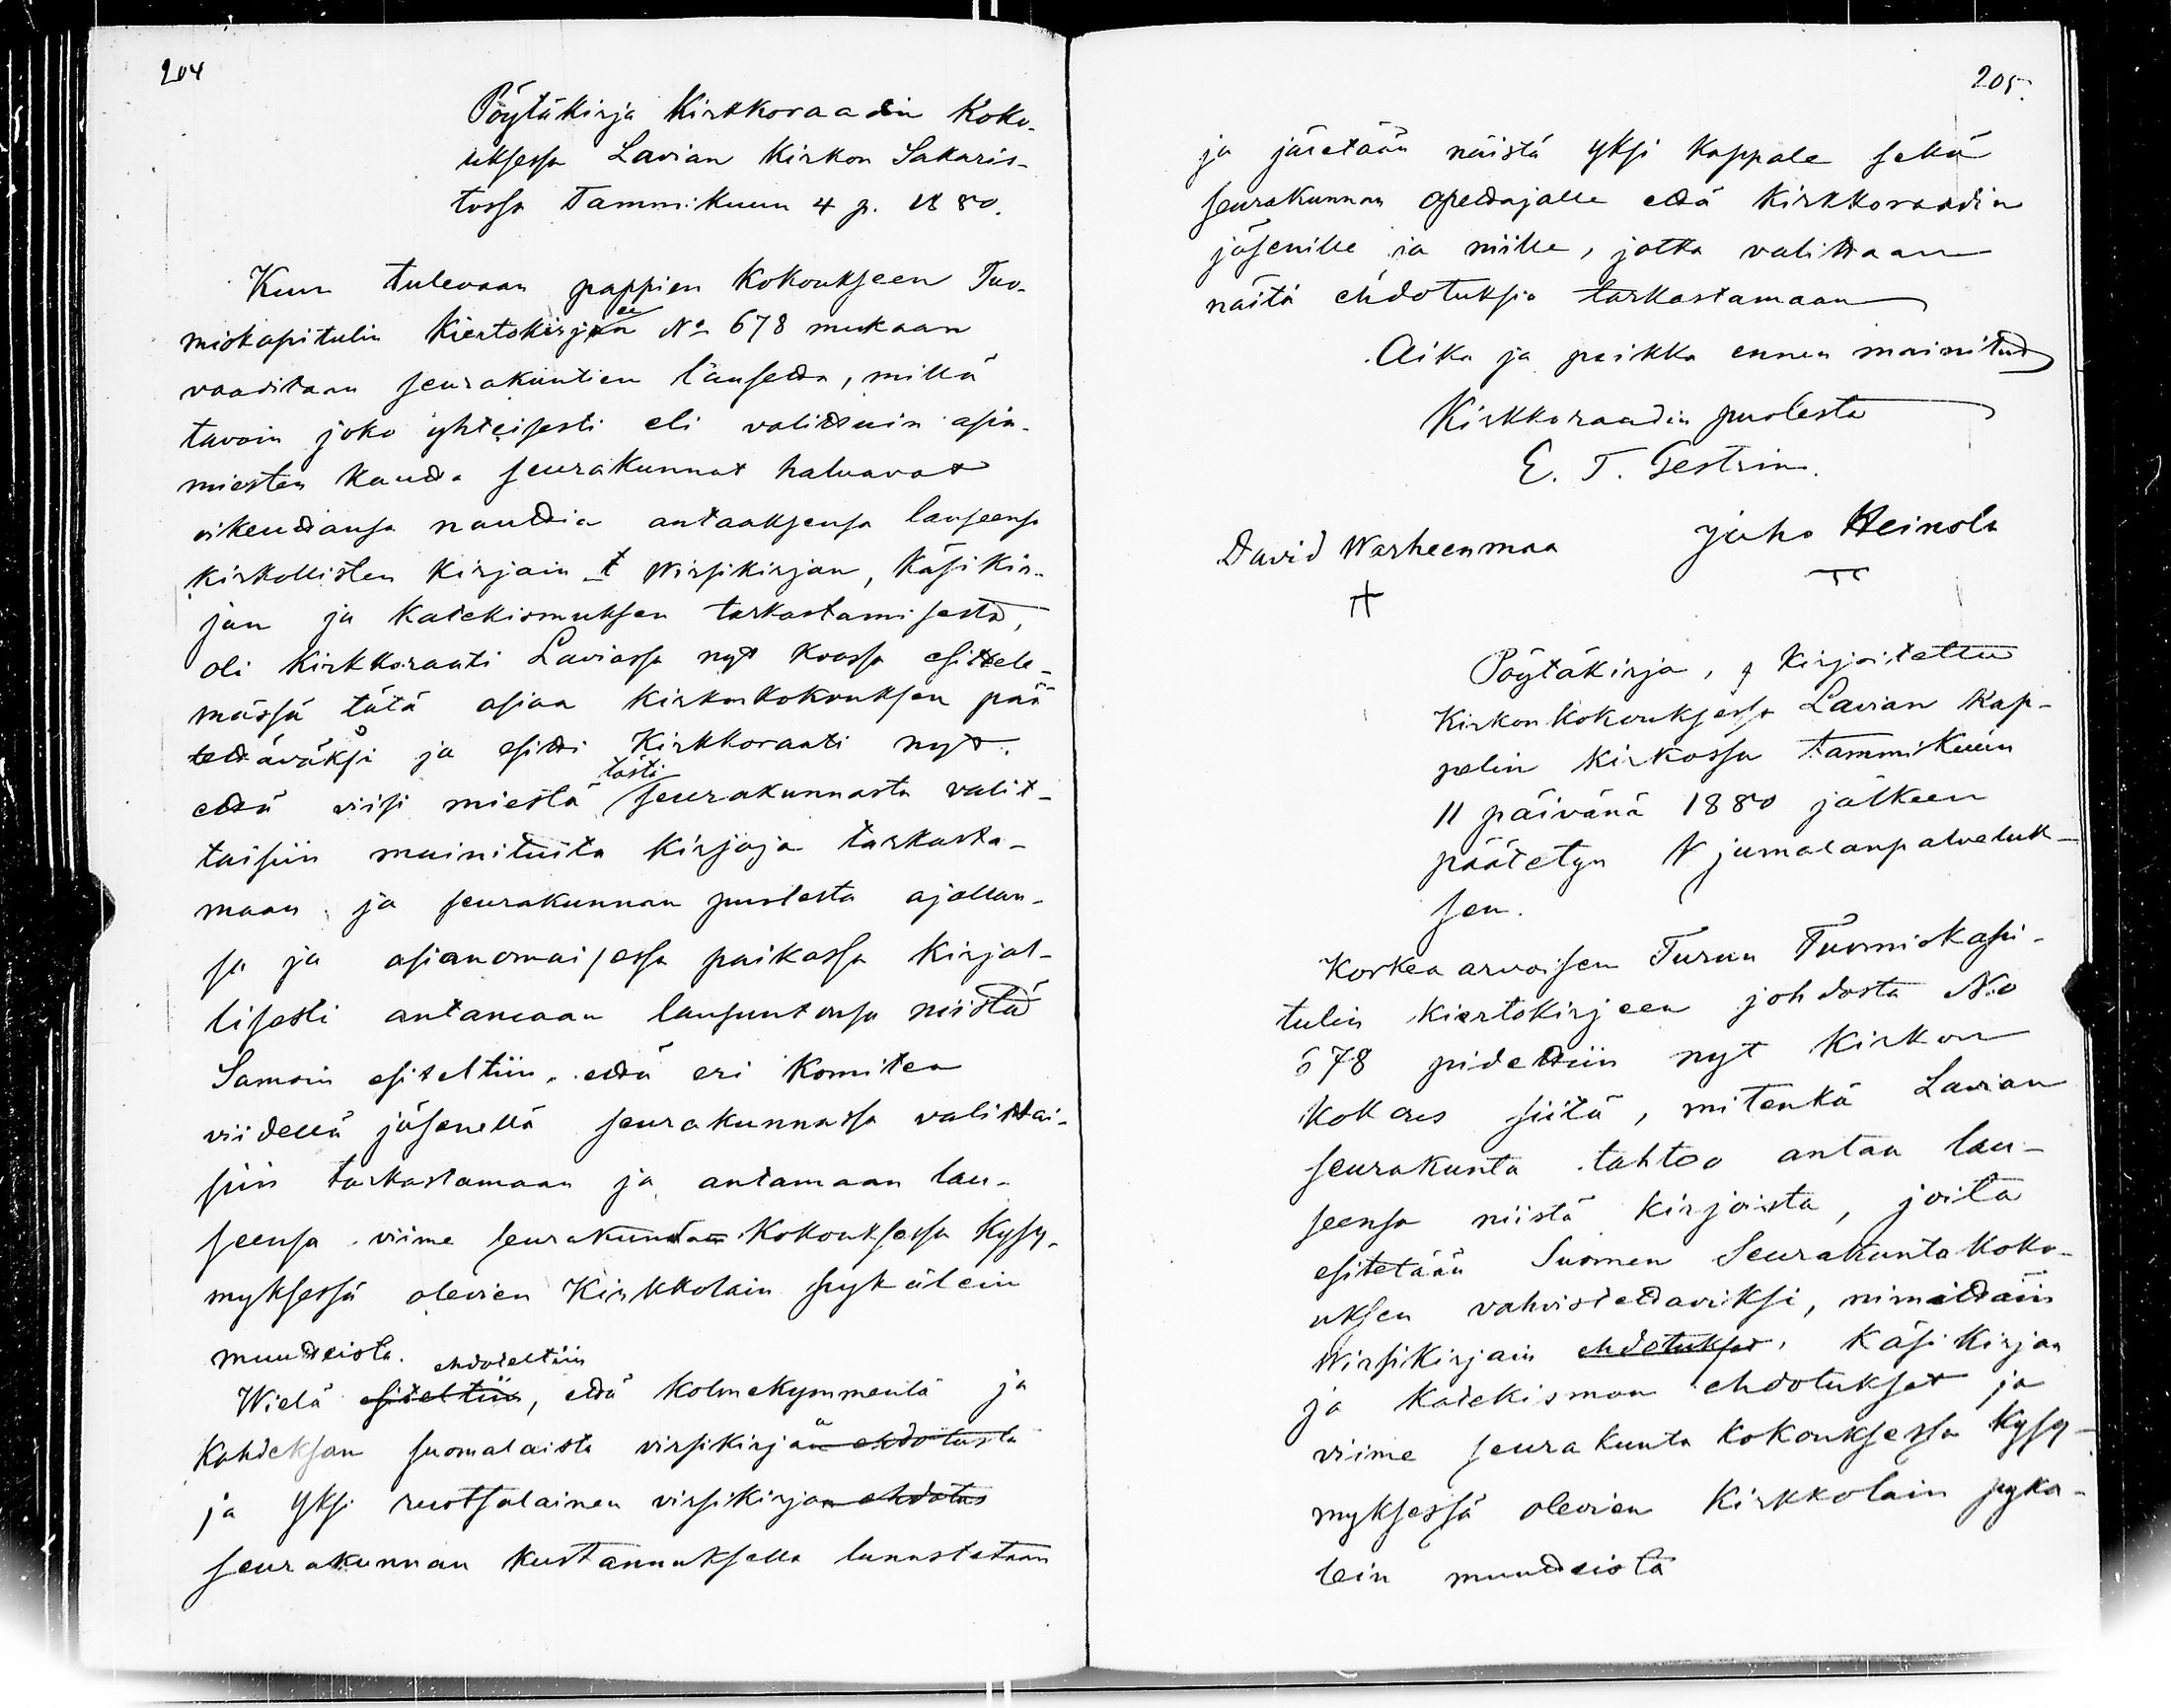 204
Pöytäkirja Kirkkoraadin Koko-
uksessa Lavian Kirkon Sakaris-
tossa Tammikuun 4 p. 1880.
Kun tulevaan pappien Kokoukseen Tuo-
miokapitulin Kiertokirjeen No 678 mukaan
vaaditaan seurakuntien lausetta, millä
tavoin joko yhteisesti eli valittuin asia-
miesten kautta seurakunnat haluavat
oikeuttansa nauttia antaaksensa lauseensa
Kirkollisten Kirjain Wirsikirjan, Käsikir-
jan ja Katekismuksen tarkastamisesta,
oli Kirkkoraati Laviassa nyt koossa esittele-
mässä tätä asiaa Kirkonkokouksen pää
tettäväksi ja esitti Kirkkoraati nyt.
että viisi miestä tästä seurakunnasta valit-
taisiin mainituita Kirjoja tarkasta-
maan ja seurakunnan puolesta ajallan-
sa ja asianomaisessa paikassa Kirjal-
lisesti antamaan lausuntonsa niistä
Samoin esiteltiin, että eri Komitea
viidellä jäsenellä seurakunnassa valittai-
siin tarkastamaan ja antamaan lau-
seensa viime seurakuntaa Kokouksessa Kysy-
myksessä olevien Kirkkolain pykälein
muutteista.
ehdoteltiin
Wielä esiteltiin, että Kolmekymmentä ja
Kahdeksan suomalaista virsikirjaa ehdotusta
ja Yksi ruotsalainen virsikirjan ehdotus
seurakunnan Kustannuksella lunastetaan
205.
ja jäetään näistä yksi Kappale sekä
seurakunnan opettajalle että Kirkkoraadin
jäsenille ja niille, jotka valittaan
näitä ehdotuksia tarkastamaan
Aika ja paikka ennen mainitud
Kirkkoraadin puolesta
E. T. Gestrin.
David Warheenmaa Juho Heinola
Pöytäkirja, Kirjoitettu
Kirkonkokouksessa Lavian Kap-
pelin Kirkossa Tammikuun
11 päivänä 1880 jälkeen
päätetyn jumalanpalveluk-
sen.
Korkea arvoisen Turun Tuomiokapi-
tulin Kiertokirjeen johdosta No
678 pidettiin nyt Kirkon
Kokous siitä, mitenkä Lavian
seurakunta tahtoo antaa lau-
seensa niistä Kirjoista, joita
esitetään Suomen Seurakunta Koko-
uksen vahvistettaviksi, nimittäin
Wirsikirjain ehdotukset, Käsi Kirjan
ja Katekismon ehdotukset ja
viime seurakunta Kokouksessa Kysy-
myksessä olevien Kirkkolain pykä-
lein muutteista